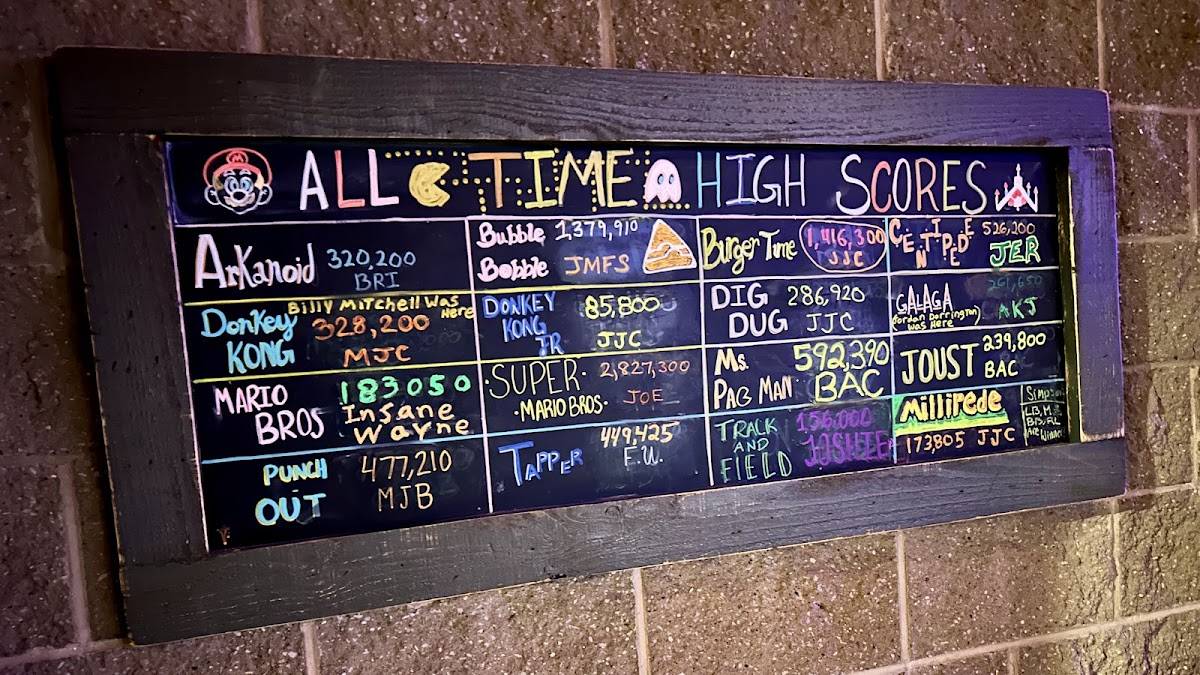 ALL TIME HIGH SCORES
Arkanoid 320,200
BRI
Bubble 1,379,910
Bobble JMFS
Burger Time 1,416,300
JJC
CENTIPEDE 526,200
JER
Billy Mitchell Was Here
Donkey KONG 328,200
MJC
DONKEY KONG JR 85,800
JJC
DIG DUG 286,920
JJC
GALAGA 261,650
(Jordan Dorrington was Here) AKJ
MARIO BROS 183050
Insane Wayne
SUPER 2,827,300
MARIO BROS. JOE
Ms. PAC MAN 592,390
BAC
JOUST 239,800
BAC
PUNCH OUT 477,210
MJB
TAPPER 449,425
F.U.
TRACK AND FIELD 156,000
Millipede
173,805 JJC